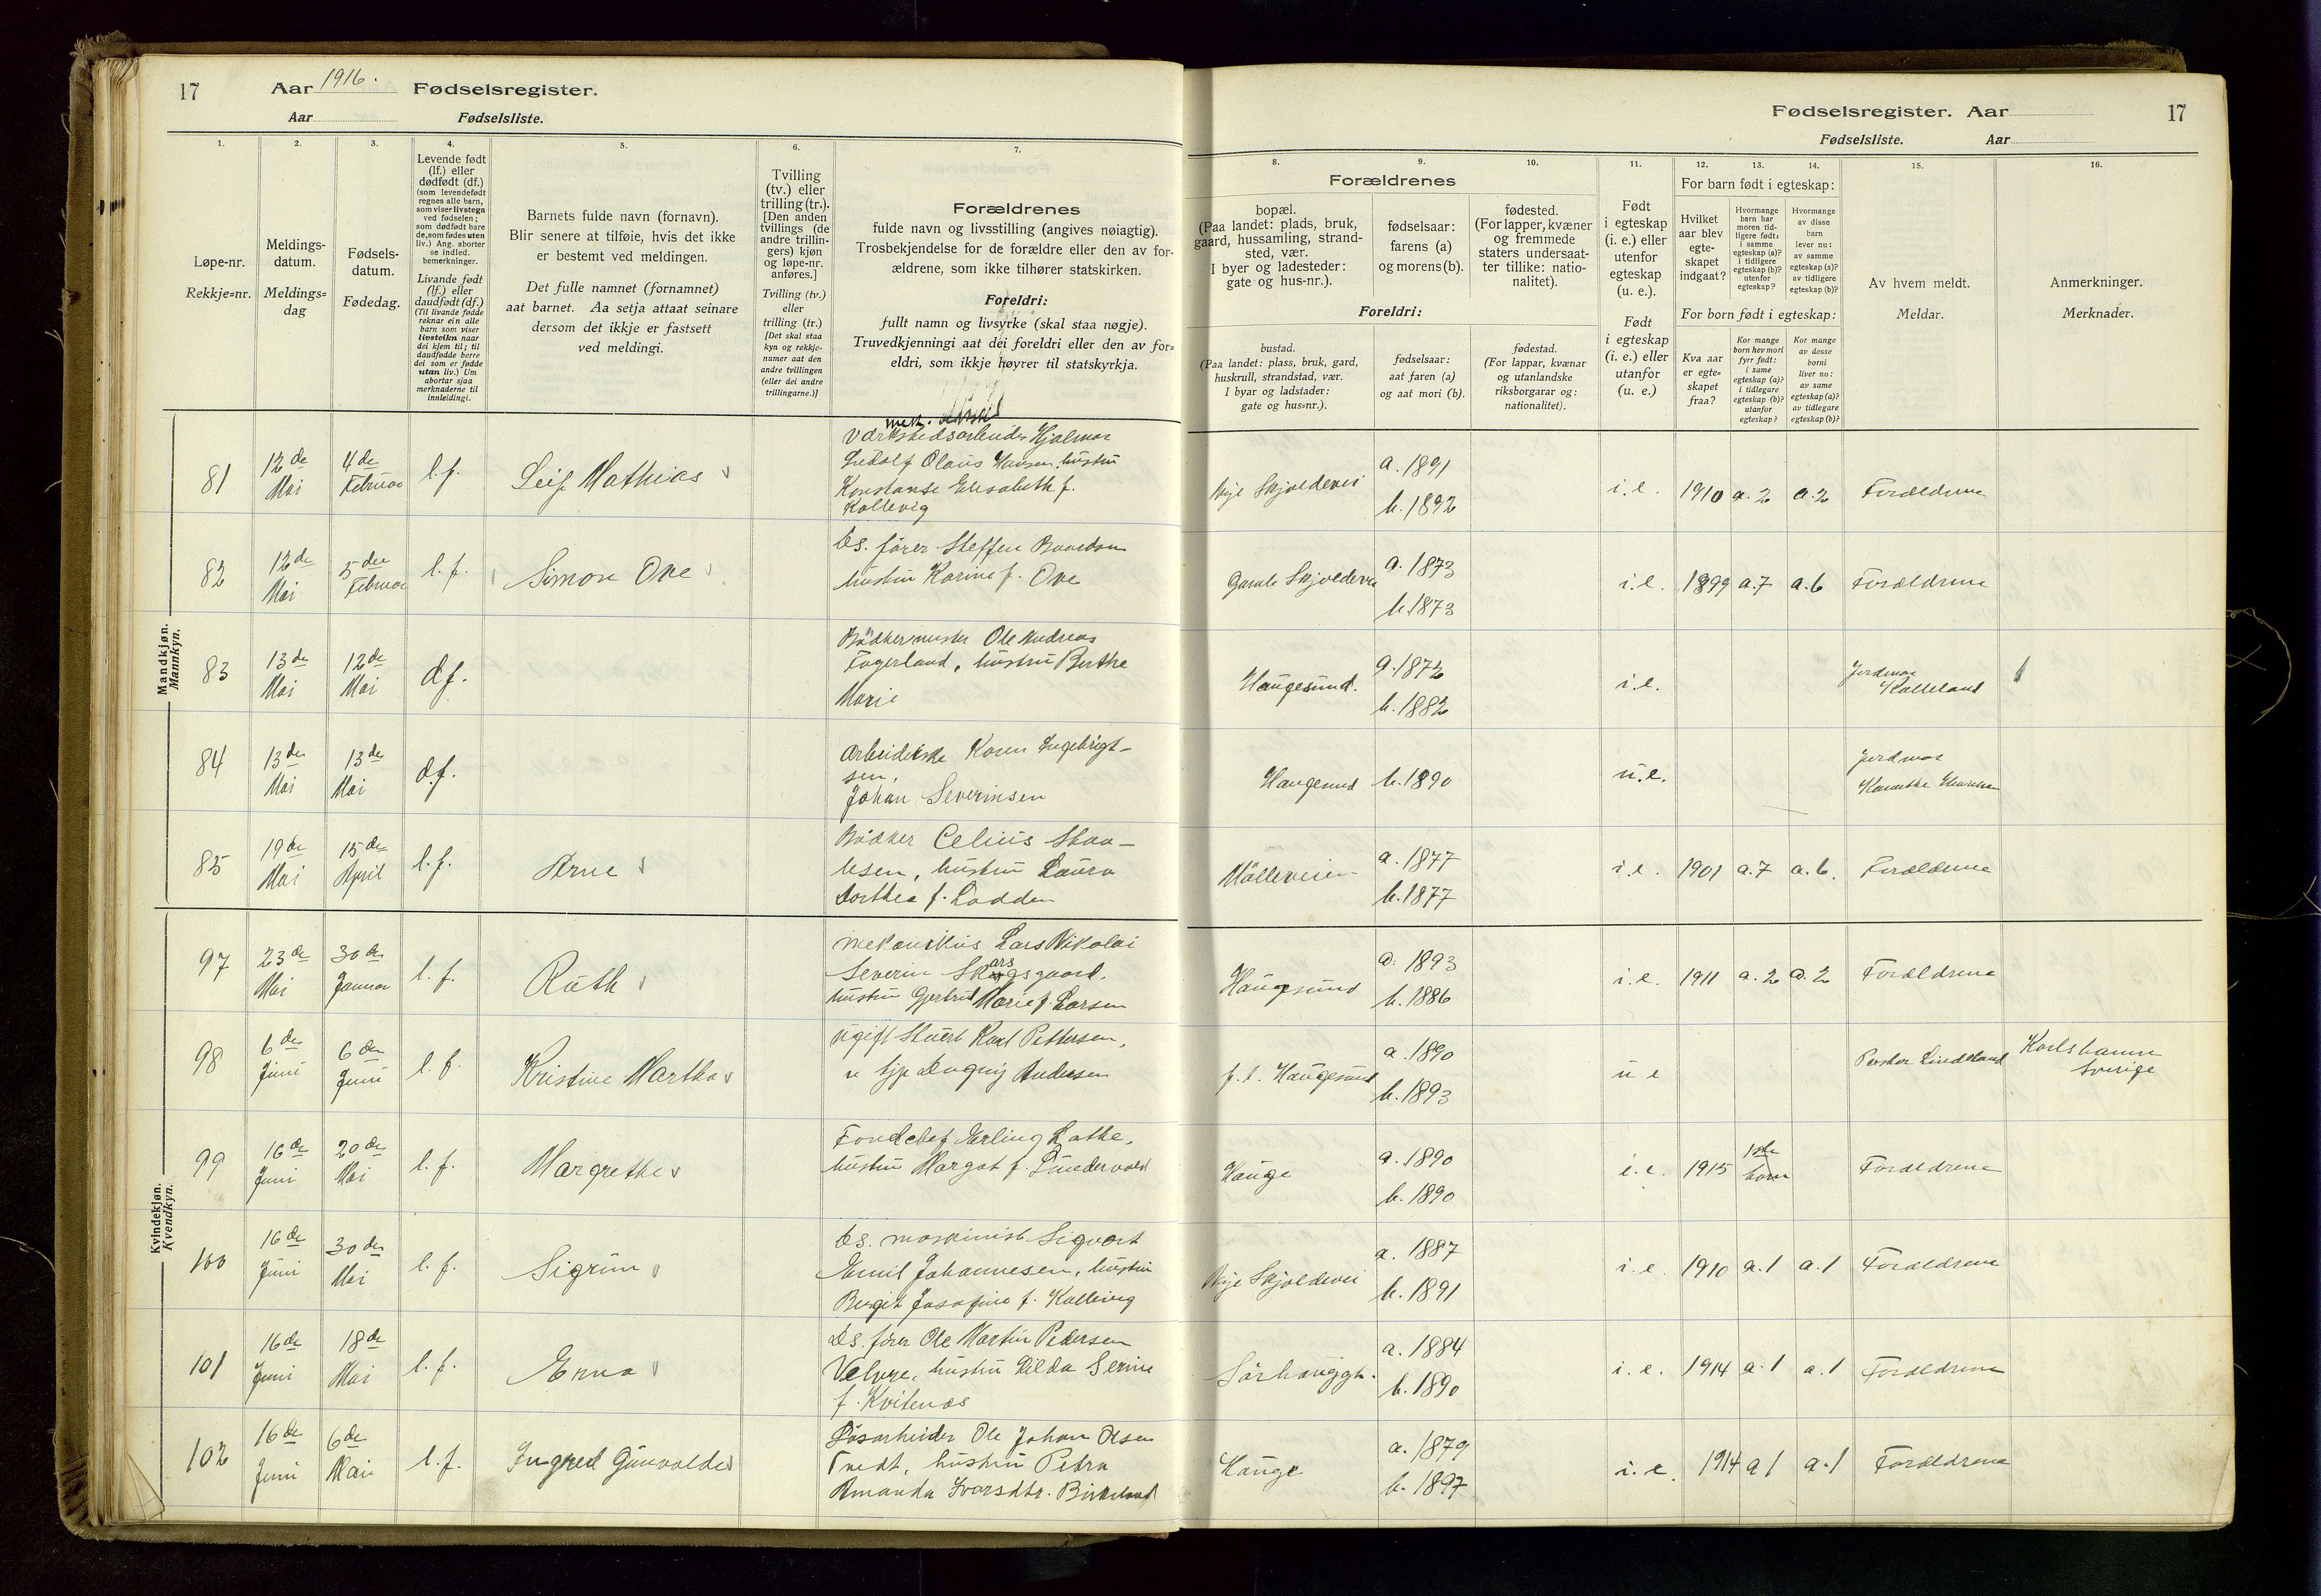 17 Aar 1916. Fødselsregister.
Aar Fødselsliste.
Fødselsregister. Aar 17
Fødselsliste. Aar
1. 2. 3. 4. 5. 6. 7.
8. 9. 10. 11. 12. 13. 14. 15. 16.
Løpe-nr.
Rekkje=nr.
Meldings-
datum.
Meldings=
dag
Fødsels-
datum.
Fødedag.
Levende født
(lf.) eller
dødfødt (df.)
(som levendefødt
regnes alle barn,
som viser livstegn
ved fødselen;
som dødfødt bare
de, som fødes uten
liv.) Ang. aborter
se indled.
bemerkninger.
Livande født
(lf.) eller
daudfødt (df.)
(Til livande fødde
reknar ein alle
barn som viser
livsteikn naar
dei kjem til; til
daudfødde berre
dei som er fødde
utan liv.) Um
abortar sjaa
merknaderne til
innleidingi.
Barnets fulde navn (fornavn).
Blir senere at tilføie, hvis det ikke
er bestemt ved meldingen.
Det fulle namnet (fornamnet)
aat barnet. Aa setja attaat seinare
dersom det ikkje er fastsett
ved meldingi.
Tvilling
(tv.) eller
trilling (tr.).
[Den anden
tvillings (de
andre trillin-
gers) kjøn
og løpe-nr.
anføres.]
Tvilling (tv.)
eller
trilling (tr.)
[Det skal staa
kyn og rekkje-
numer aat den
andre tvillingen
(eller dei andre
trillingarne.)]
Forældrenes
fulde navn og livsstilling (angives nøiagtig).
Trosbekjendelse for de forældre eller den av for-
ældrene, som ikke tilhører statskirken.
Foreldri:
fullt namn og livsyrke (skal staa nøgje).
Truvedkjenningi aat dei foreldri eller den av for=
eldri, som ikkje høyrer til statskyrkja.
Forældrenes
bopæl.
(Paa landet: plads, bruk,
gaard, hussamling, strand-
sted, vær.
I byer og ladesteder:
gate og hus-nr.).
fødselsaar:
farens (a)
og morens (b).
fødested.
(For lapper, kvæner
og fremmede
staters undersaat-
ter tillike: natio-
nalitet).
Foreldri:
bustad.
(Paa landet: plass, bruk, gard,
huskrull, strandstad, vær.
I byar og ladstader:
gate og hus=nr.).
fødselsaar:
aat faren (a)
og aat mori (b).
fødestad.
(For lappar, kvænar
og utanlandske
riksborgarar og:
nationalitet).
Født
i egteskap
(i. e.) eller
utenfor
egteskap
(u. e.).
Født
i egteskap
(i. e.) eller
utanfor
(u. e.)
For barn født i egteskap:
Hvilket
aar blev
egte-
skapet
indgaat?
Hvormange
barn har
moren tid-
ligere født:
i samme
egteskap (a)?
i tidligere
egteskap (b)?
utenfor
egteskap?
Hvormange
av disse
barn
lever nu:
av samme
egteskap (a)?
av tidligere
egteskap (b)?
For born født i egteskap:
Kva aar
er egte=
skapet
fraa?
Kor mange
born hev mori
fyrr født:
i same
egteskap (a)?
i tidlegare
egteskap (b)?
utanfor
egteskap?
Kor mange
av desse
borni
liver no:
av same
egteskap (a)?
av tidlegare
egteskap (b)?
Av hvem meldt.
Meldar.
Anmerkninger.
Merknader.
Mandkjøn.
Mannkyn.
81 12de Mai 4de Februar l.f. Leif Mathias
mek.
Værkstedsarbeider Hjalmar
Ludolf Olaus Hansen, hustru
Konstanse Elisabeth f.
Kallevig
Nye Skjoldevei a. 1891 b. 1892 i.e. 1910 a. 2 a. 2 Forældrene
82 12de Mai 5der Februar l.f. Simon Ove
Ds. fører Steffen Baardsen
hustru Karine f. Ove
Gamle Skjoldevei a. 1873 b. 1873 i.e. 1899 a. 7 a. 6 Forældrene
83 13de Mai 12de Mai df.
Bødkermester Ole Andreas
Fagerland, hustru Berthe
Marie
Haugesund. a. 1872 b. 1882 i.e. Jordmor Kalleland
84 13de Mai 13de Mai d.f.
Arbeiderske Karen Ingebrigt-
sen,
Johan Severinsen
Haugesund b. 1890 u.e. Jordmor
85 19de Mai 15de April l.f. Arne
Bødker Celius Staa-
lesen, hustru Laura
Dorthea f. Lodden
Mølleveien a. 1877 b. 1877 i.e. 1901 a. 7 a. 6. Forældrene
Kvindekjøn.
Kvendkyn.
97 23de Mai 30de Januar l.f. Ruth
mekanikus Lars Nikolai
Severin
hustru Gjertrud Marie f. Larsen
Haugesund a. 1893 b. 1886 i.e. 1911 a. 2 a. 2 Forældrene
98 6de Juni 6de Juni l.f. Kristine Martha
ugift Stuert Karl Pettersen,
Andersen
p.t. Haugesund a. 1890 b. 1893 u e Pastor Lindeland Karlshamn
Sverige
99 16de Juni 20de Mai l.f. Margrethe
Fondchef Erling Lothe,
hustru Margot f. Lindervold
Hauge a. 1890 b. 1890 i.e. 1915 1ste barn Forældrene
100 16de Juni 30de Mai l.f. Sigrun
Ds. maskinist Sigvart
Emil Johannesen, hustru
Birgit Josefine f. Kallevig
Nye Skjoldevei a. 1887 b. 1891 i.e. 1910 a. 1 a. 1 Forældrene
101 16de Juni 18de Mai l.f. Erna
Ds. fører Ole Martin Pedersen
Velure, hustru Hilda Serine
f. Kvitenæs
Sørhauggt. a. 1884 b. 1890 i.e. 1914 a. 1 a. 1 Forældrene
102 16de Juni 6de Mai l.f. Ingred Gunvalde
Løsarbeider Ole Johan Olsen
Tvedt, hustru Petra
Amanda Ivarsdtr. Birkeland
Hauge a. 1879 b. 1897 i.e. 1914 a 1 a. 1 Forældrene